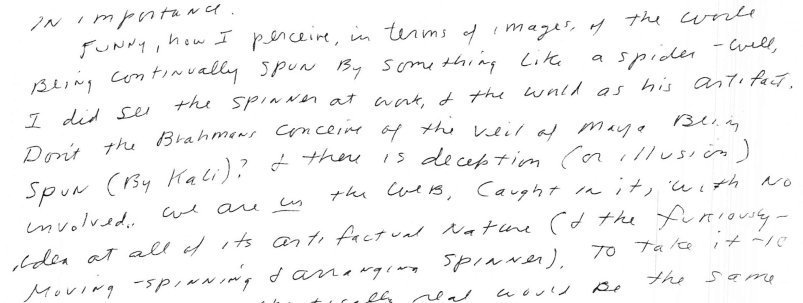 in importance.
Funny, how I perceive, in terms of images, of the world
Being continually spun By something like a spider - well,
I did see the spinner at work, & the world as his artifact.
Don't the Brahmans conceive of the veil of Maya Being
spun (By Kali)? & there is deception (or illusion)
involved. We are in the web, caught in it, with no
idea at all of its artifactual nature (& the furiously-
moving-spinning & arranging spinner). To take it
real would be the same